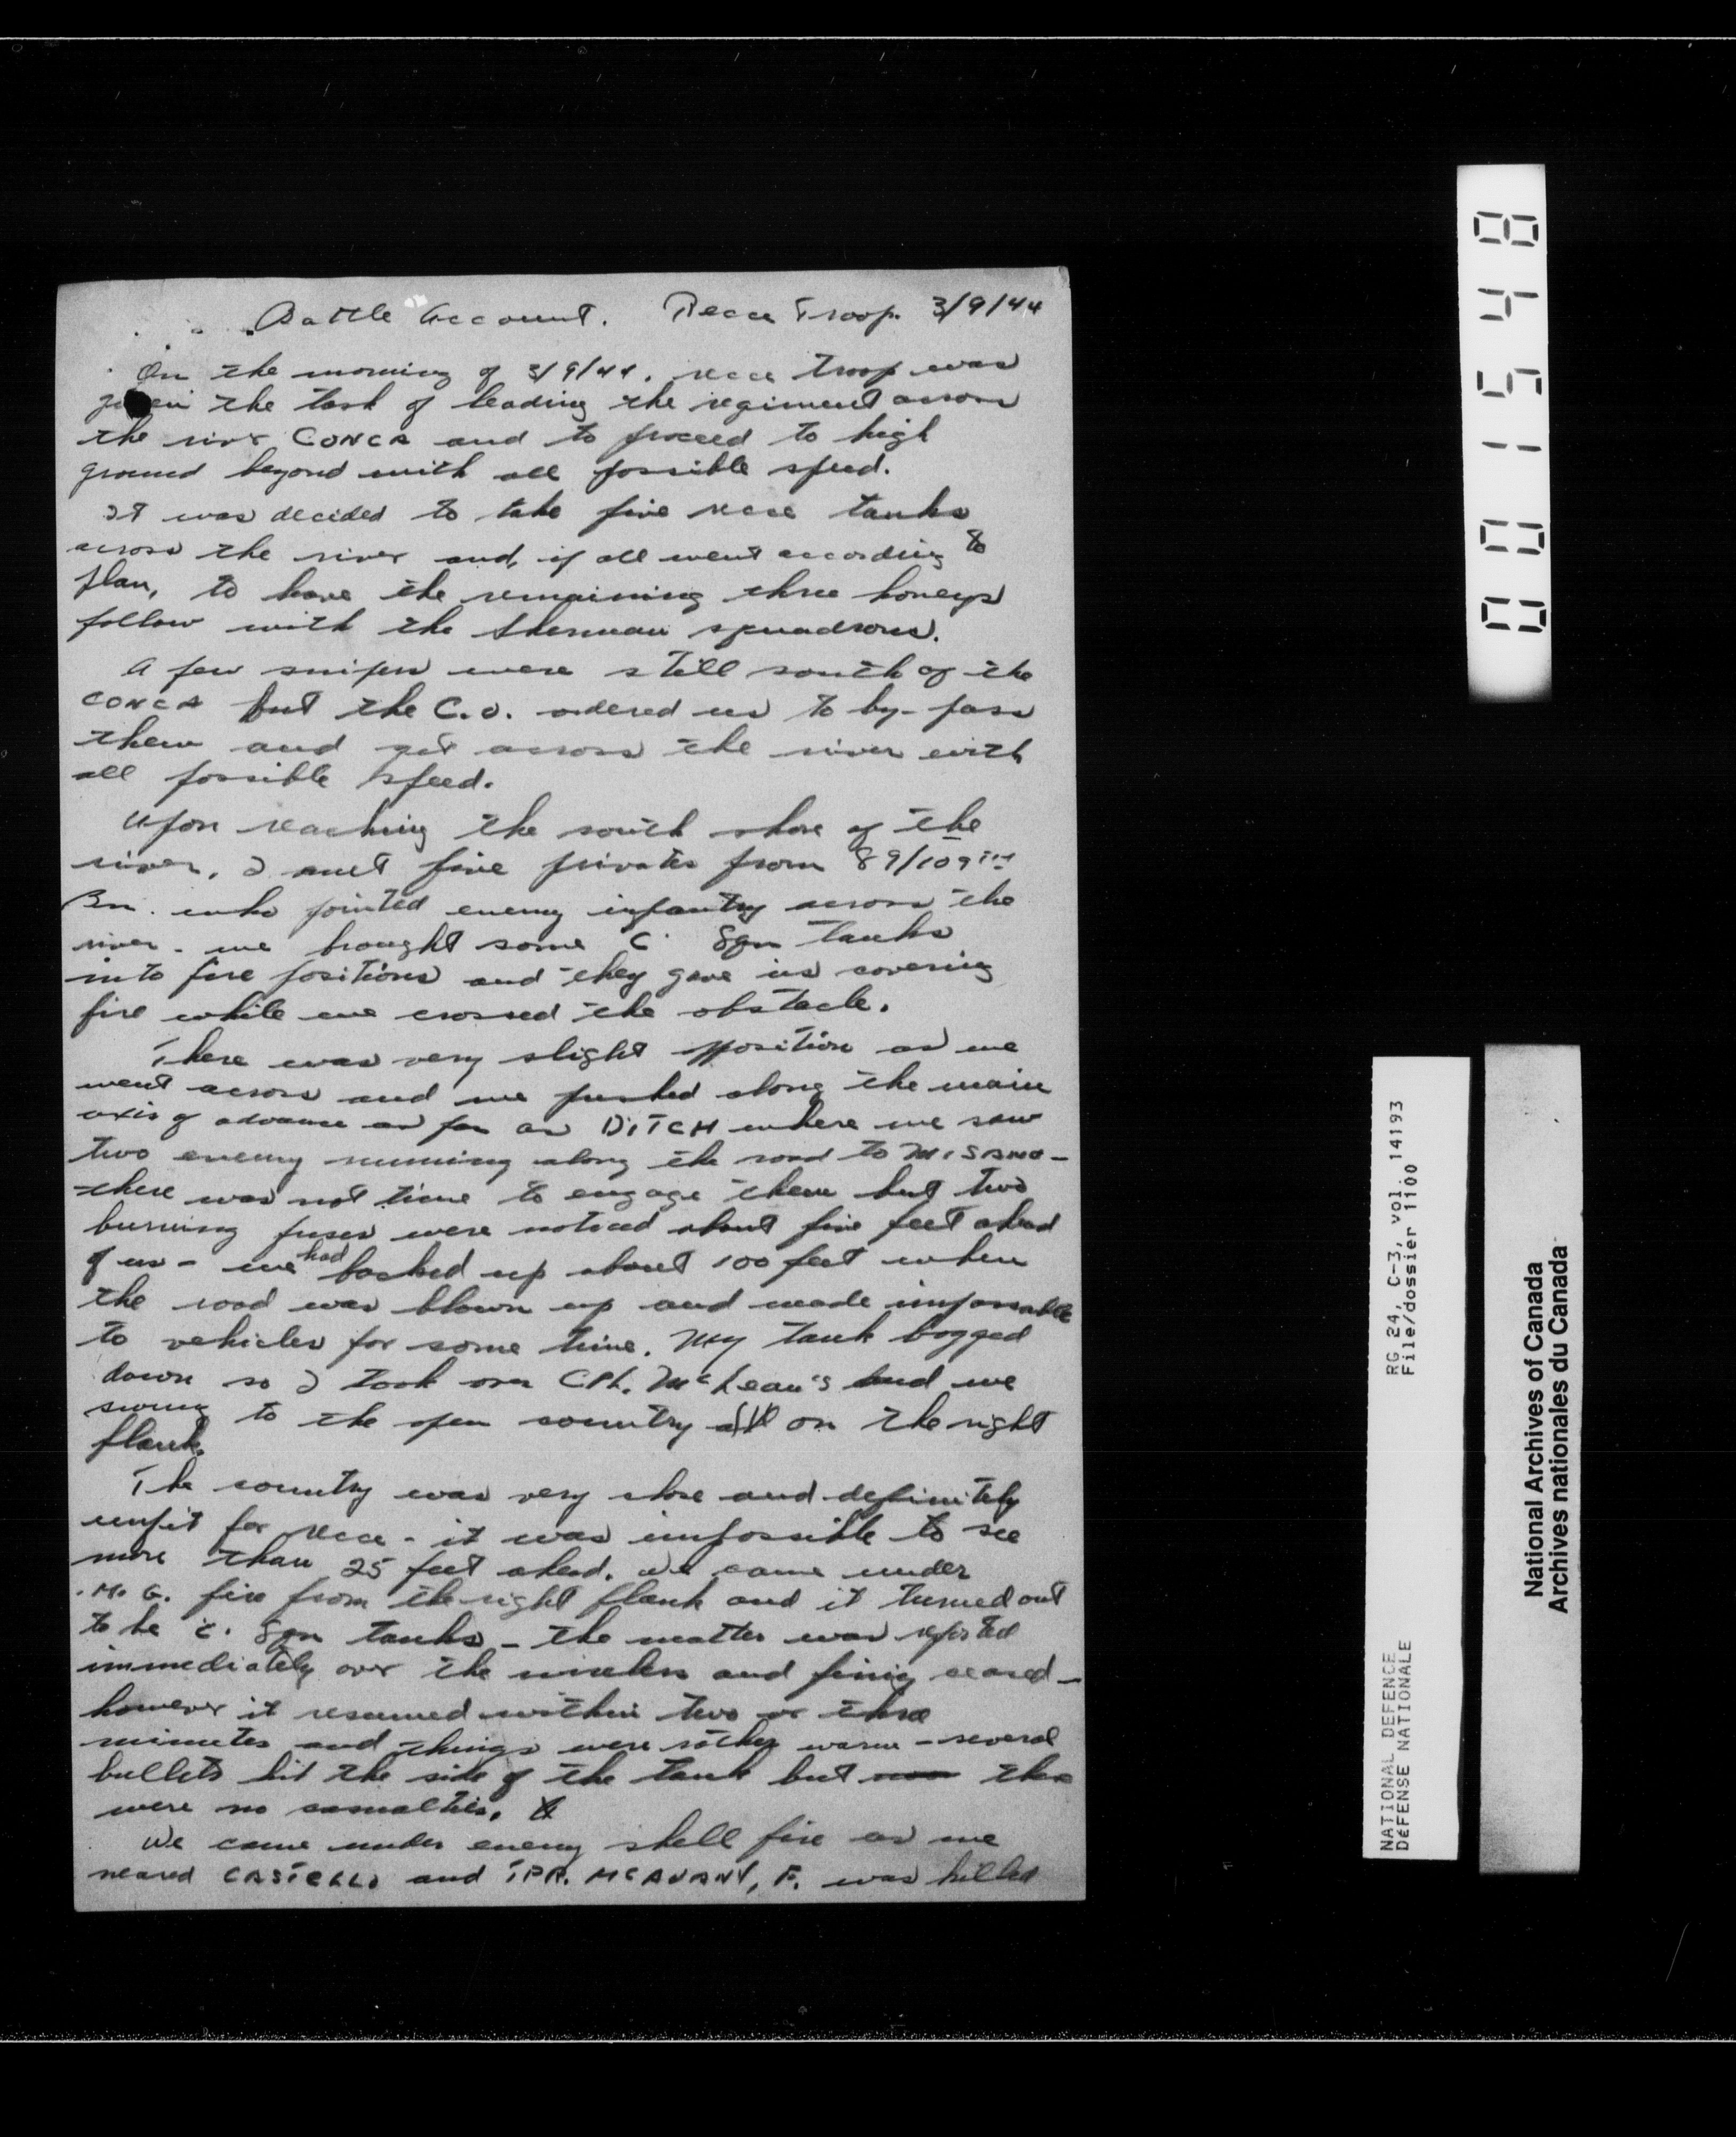 Battle Account. Recce Troop. 3/9/44
On the morning of 3/9/44. recce troop was
given the task of leading the regiment across
the river CONCA and to proceed to high
ground beyond with all possible speed.
It was decided to take five recce tanks
across the river and, if all went according to
plan, to have the remaining three honeys
follow with the Sherman squadrons.
A few snipers were still south of the
CONCA but the C.O. ordered us to by-pass
them and get across the river with
all possible speed.
Upon reaching the south shore of the
river, I met five privates from 89/109TH
Bn. who pointed enemy infantry across the
river - we brought some C Sqn tanks
into fire positions and they gave us covering
fire while we crossed the obstacle.
There was very slight opposition as we
went across and we pushed along the main
axis of advance as far as DITCH where we saw
two enemy running along the road to MISANO -
there was not time to engage them but two
burning fuses were noticed about five feet ahead
of us - we had backed up about 100 feet when
the road was blown up and made impassable
to vehicles for some time. My tank bogged
down so I took over CPL. McLean's and we
swung to the open country on the right
flank.
The country was very close and definitely
unfit for recce - it was impossible to see
more than 25 feet ahead. We came under
M.G. fire from the right flank and it turned out
to be C. Sqn tanks - the matter was reported
immediately over the wireless and firing ceased -
however it resumed within two or three
minutes and things were rather warm - several
bullets hit the side of the tank but there
were no casualties.
We came under enemy shell fire as we
neared CASTELLO and TPR. F. was killed
00 1548
RG 24, C-3, vol. 14193
File/dossier 1100
NATIONAL DEFENCE
DÉFENSE NATIONALE
National Archives of Canada
Archives nationales du Canada